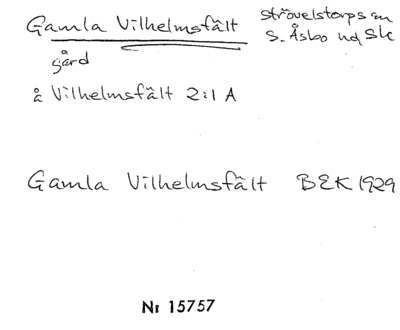 Gamla Vilhelmsfält Strövelstorps sn
S. Åsbo hd Sk
gård
å Vilhelmsfält 2:1 A
Gamla Vilhelmsfält BEK 1929
Nr 15757